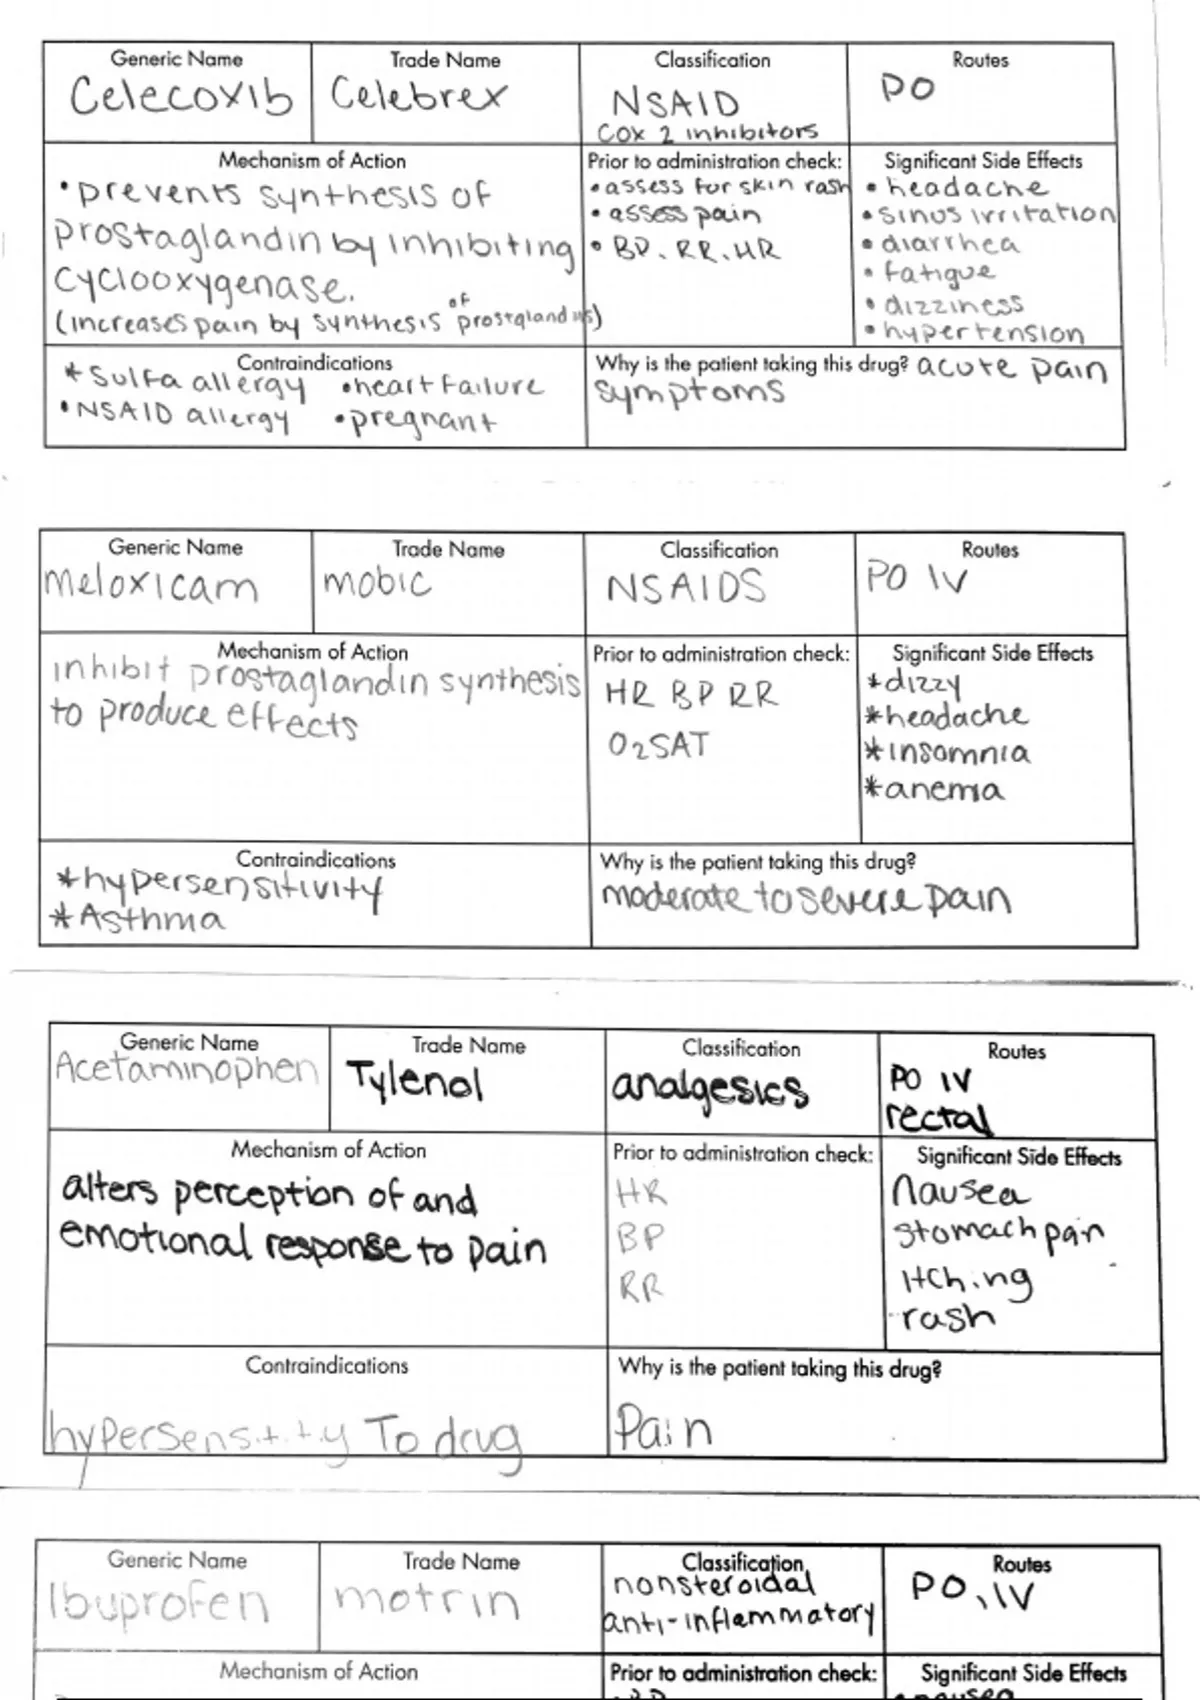 Generic Name Trade Name Classification Routes
Celecoxib Celebrex NSAID PO
Cox 2 inhibitors
Mechanism of Action Prior to administration check: Significant Side Effects
• prevents synthesis of • assess for skin rash • headache
prostaglandin by inhibiting • assess pain • sinus irritation
cyclooxygenase. • BP, RR, HR • diarrhea
(increases pain by synthesis of prostglandins) • fatigue
• dizziness
• hypertension
Contraindications Why is the patient taking this drug? acute pain
* Sulfa allergy • heart failure symptoms
• NSAID allergy • pregnant
Generic Name Trade Name Classification Routes
Meloxicam mobic NSAIDS PO IV
Mechanism of Action Prior to administration check: Significant Side Effects
inhibit prostaglandin synthesis HR BP RR *dizzy
to produce effects O2SAT *headache
*insomnia
*anemia
Contraindications Why is the patient taking this drug?
*hypersensitivity moderate to severe pain
*Asthma
Generic Name Trade Name Classification Routes
Acetaminophen Tylenol analgesics PO IV
rectal
Mechanism of Action Prior to administration check: Significant Side Effects
alters perception of and HR Nausea
emotional response to pain BP stomach pain
RR Itching
rash
Contraindications Why is the patient taking this drug?
hypersensitity To drug Pain
Generic Name Trade Name Classification Routes
Ibuprofen motrin nonsteroidal PO, IV
anti-inflammatory
Mechanism of Action Prior to administration check: Significant Side Effects